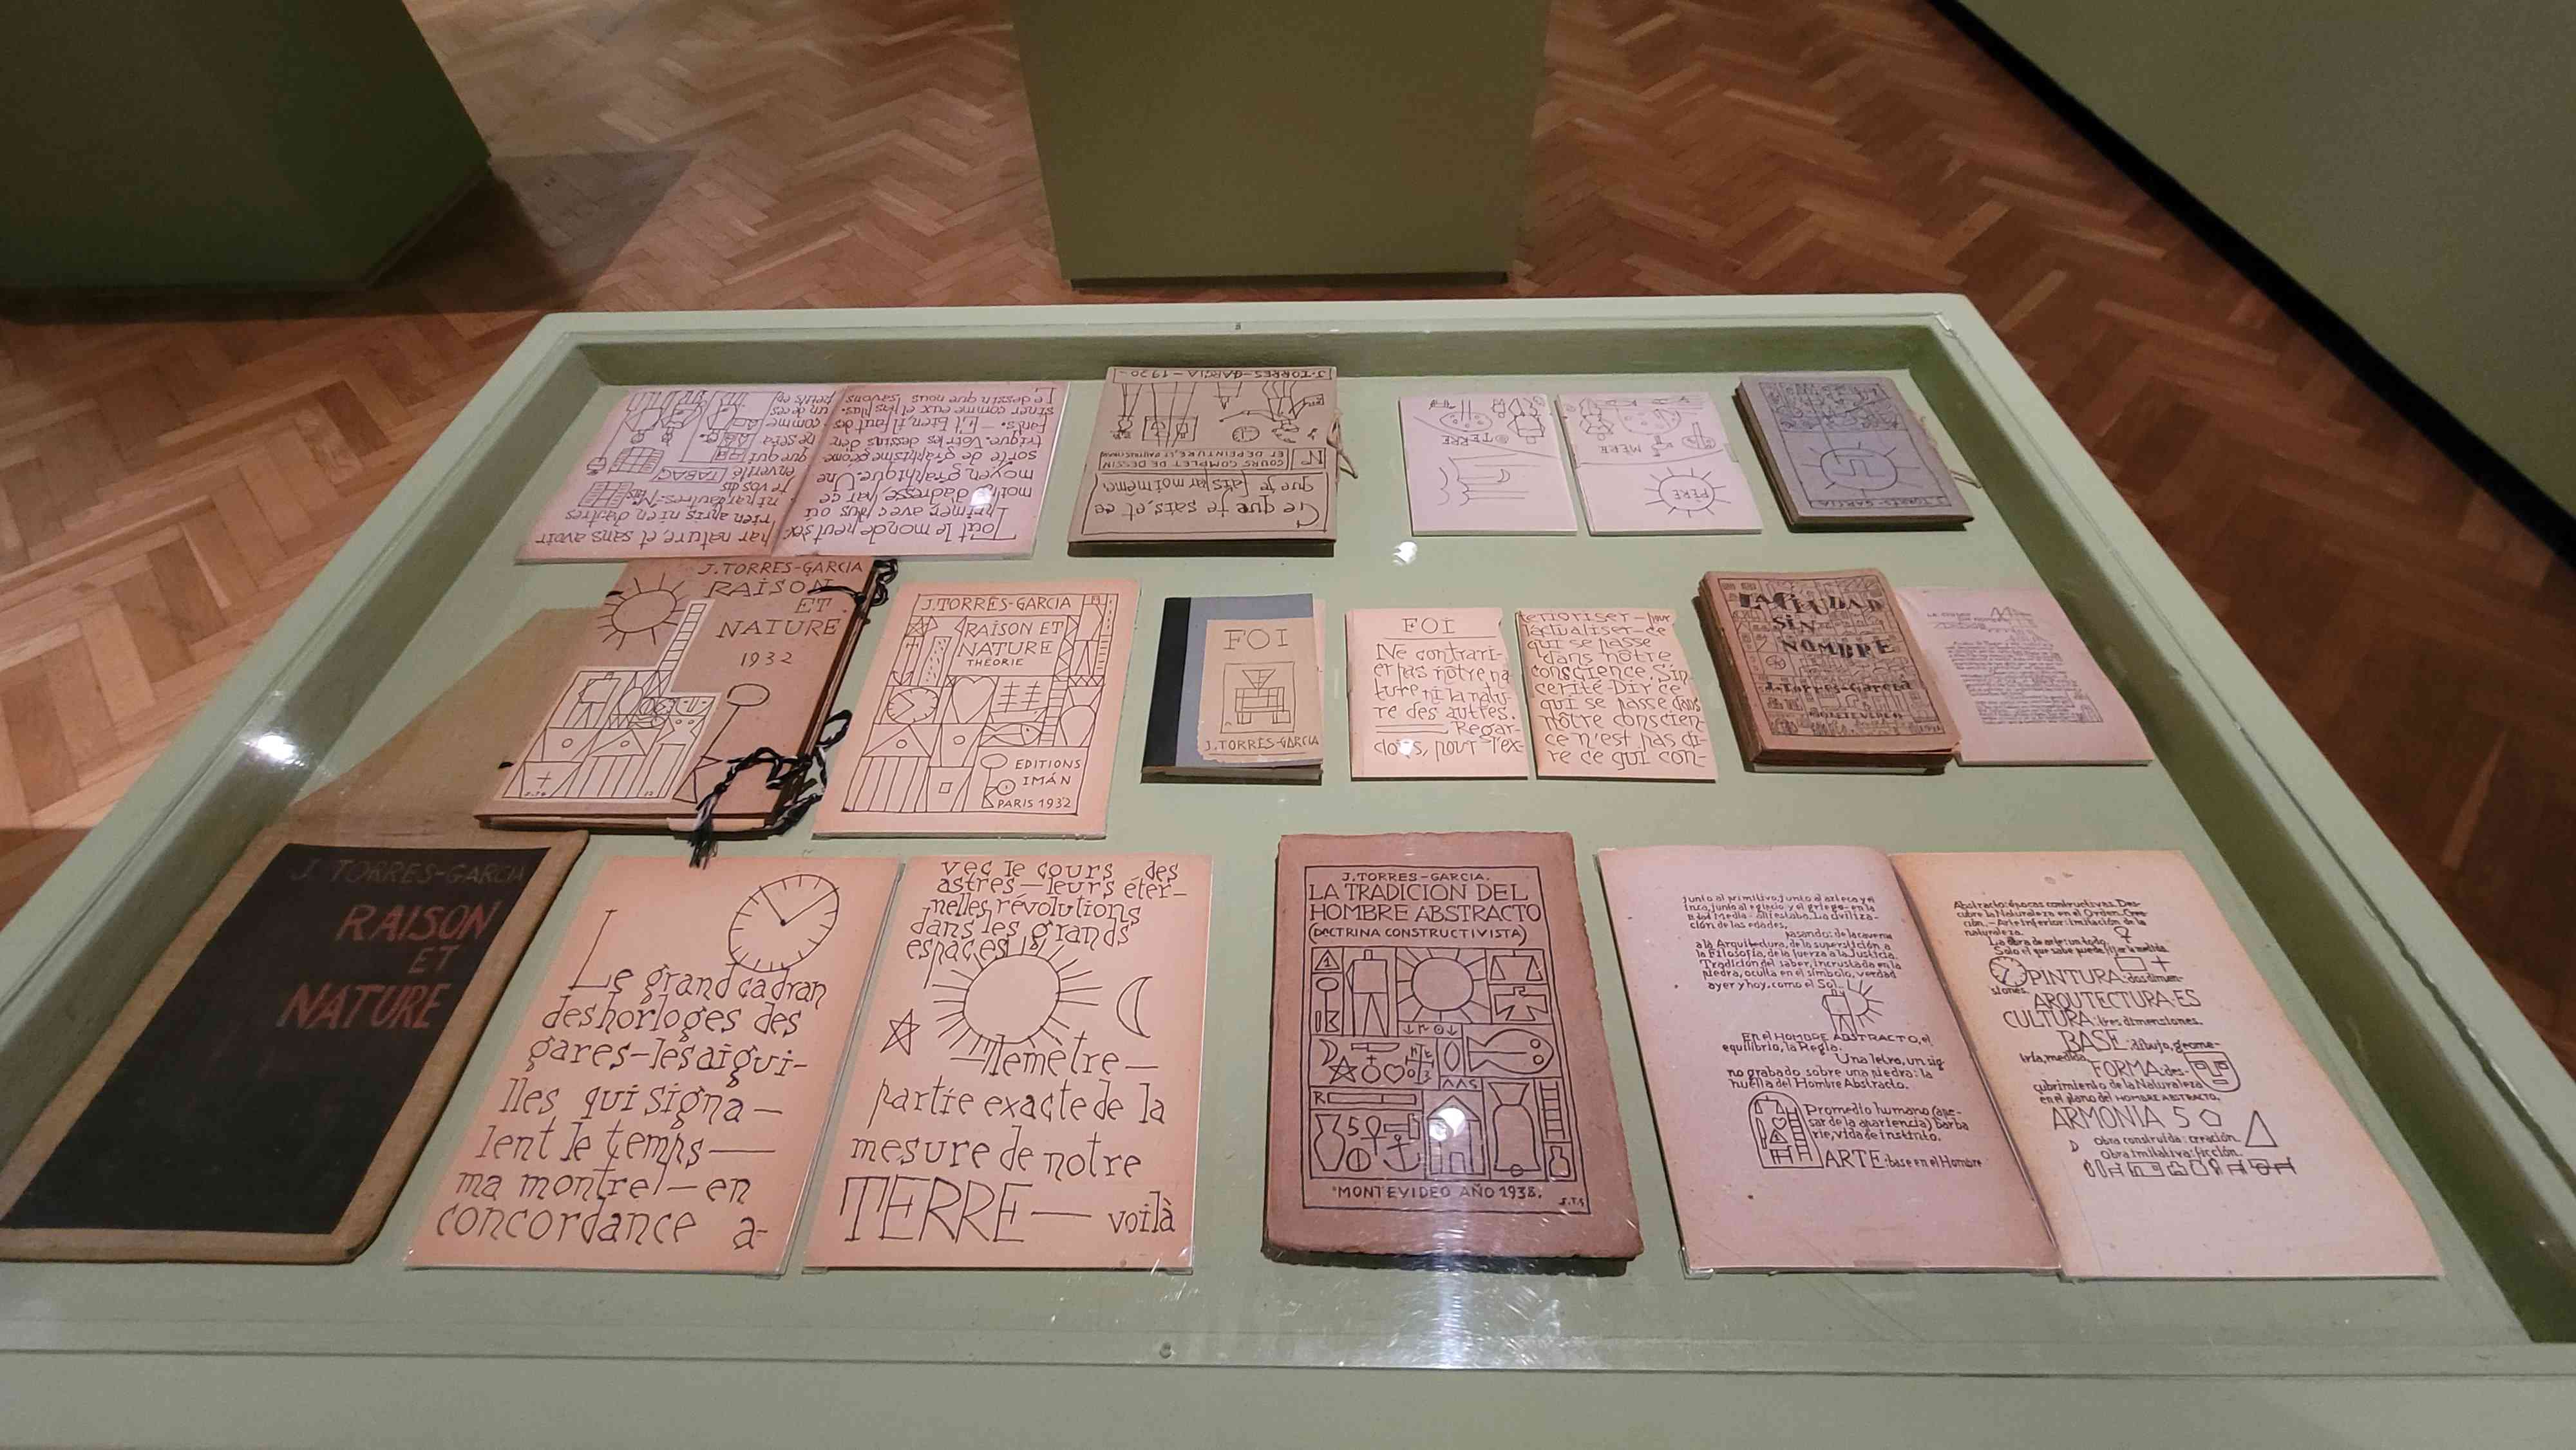 Tout le monde peut s'ex-
primer avec plus ou
moins d'adresse par ce
moyen graphique. Une
sorte de graphisme géomé-
trique. Voir les dessins d'en-
fants. — Eh bien il faut des-
siner comme eux et pas plus.
Le dessin que nous savons
par nature et sans avoir
rien appris ni en d'autres
TABAC
que qui
ne sera
comme
un de ces
petits
Ce que je sais, et ce
que je fais par moi-même,
COURS COMPLET DE DESSIN
ET DE PEINTURE, ET D'AUTRES CHOSES
Nº
J. TORRES-GARCIA-1930-
TERRE
PÈRE
MÈRE
J. TORRES-GARCIA
J. TORRES-GARCIA
RAISON
ET
NATURE
1932
J. TORRES-GARCIA
RAISON ET
NATURE
THÉORIE
EDITIONS
IMÁN
PARIS 1932
FOI
J. TORRES-GARCIA
FOI
Ne contrari-
er pas nôtre na-
ture ni la natu-
re des autres.
Regar-
dons, pour l'ex-
terioriser — pour
l'actualiser — ce
qui se passe
dans nôtre
conscience. Sin-
cerité. Dir ce
qui se passe dans
nôtre conscien-
ce n'est pas di-
re ce qui con-
LA CIUDAD
SIN
NOMBRE
J. Torres-García
MONTEVIDEO
J. TORRES-GARCIA
RAISON
ET
NATURE
Le grand cadran
des horloges des
gares—les aigui-
lles qui signa—
lent le temps—
ma montre!—en
concordance a-
vec le cours des
astres—leurs éter—
nelles révolutions
dans les grands
espaces!
—lemètre—
partie exacte de la
mesure de notre
TERRE— voilà
J. TORRES-GARCIA.
LA TRADICION DEL
HOMBRE ABSTRACTO
(DOCTRINA CONSTRUCTIVISTA)
MONTEVIDEO AÑO 1938.
J.T.G
junto al primitivo, junto al azteca y el
inca, junto al egipcio y el griego - en la
Edad Media - allí estaba. La civiliza-
ción de las edades,
pasando: de la caverna
a la Arquitectura, de la superstición a
la Filosofía, de la fuerza a la Justicia.
Tradición del saber, incrustada en la
piedra, oculta en el símbolo, verdad
ayer y hoy, como el Sol.
En el HOMBRE ABSTRACTO, el
equilibrio, la Regla.
Una letra, un sig-
no grabado sobre una piedra: la
huella del Hombre Abstracto.
Promedio humano (ape-
sar de la apariencia) barba
rie, vida de instinto.
ARTE: base en el Hombre
Abstracto: épocas constructivas. Des-
cubre la Naturaleza en el Orden. Crea-
ción. - Arte inferior: imitación de la
naturaleza.
La obra de arte: un todo.
Solo el que sabe puede fijar la medida
PINTURA: dos dimen-
siones.
ARQUITECTURA: ES
CULTURA: tres dimensiones.
BASE: dibujo, geome-
tría, medida.
FORMA: des-
cubrimiento de la Naturaleza
en el plano del HOMBRE ABSTRACTO.
ARMONIA 5
Obra construida: creación.
Obra imitativa: ficción.